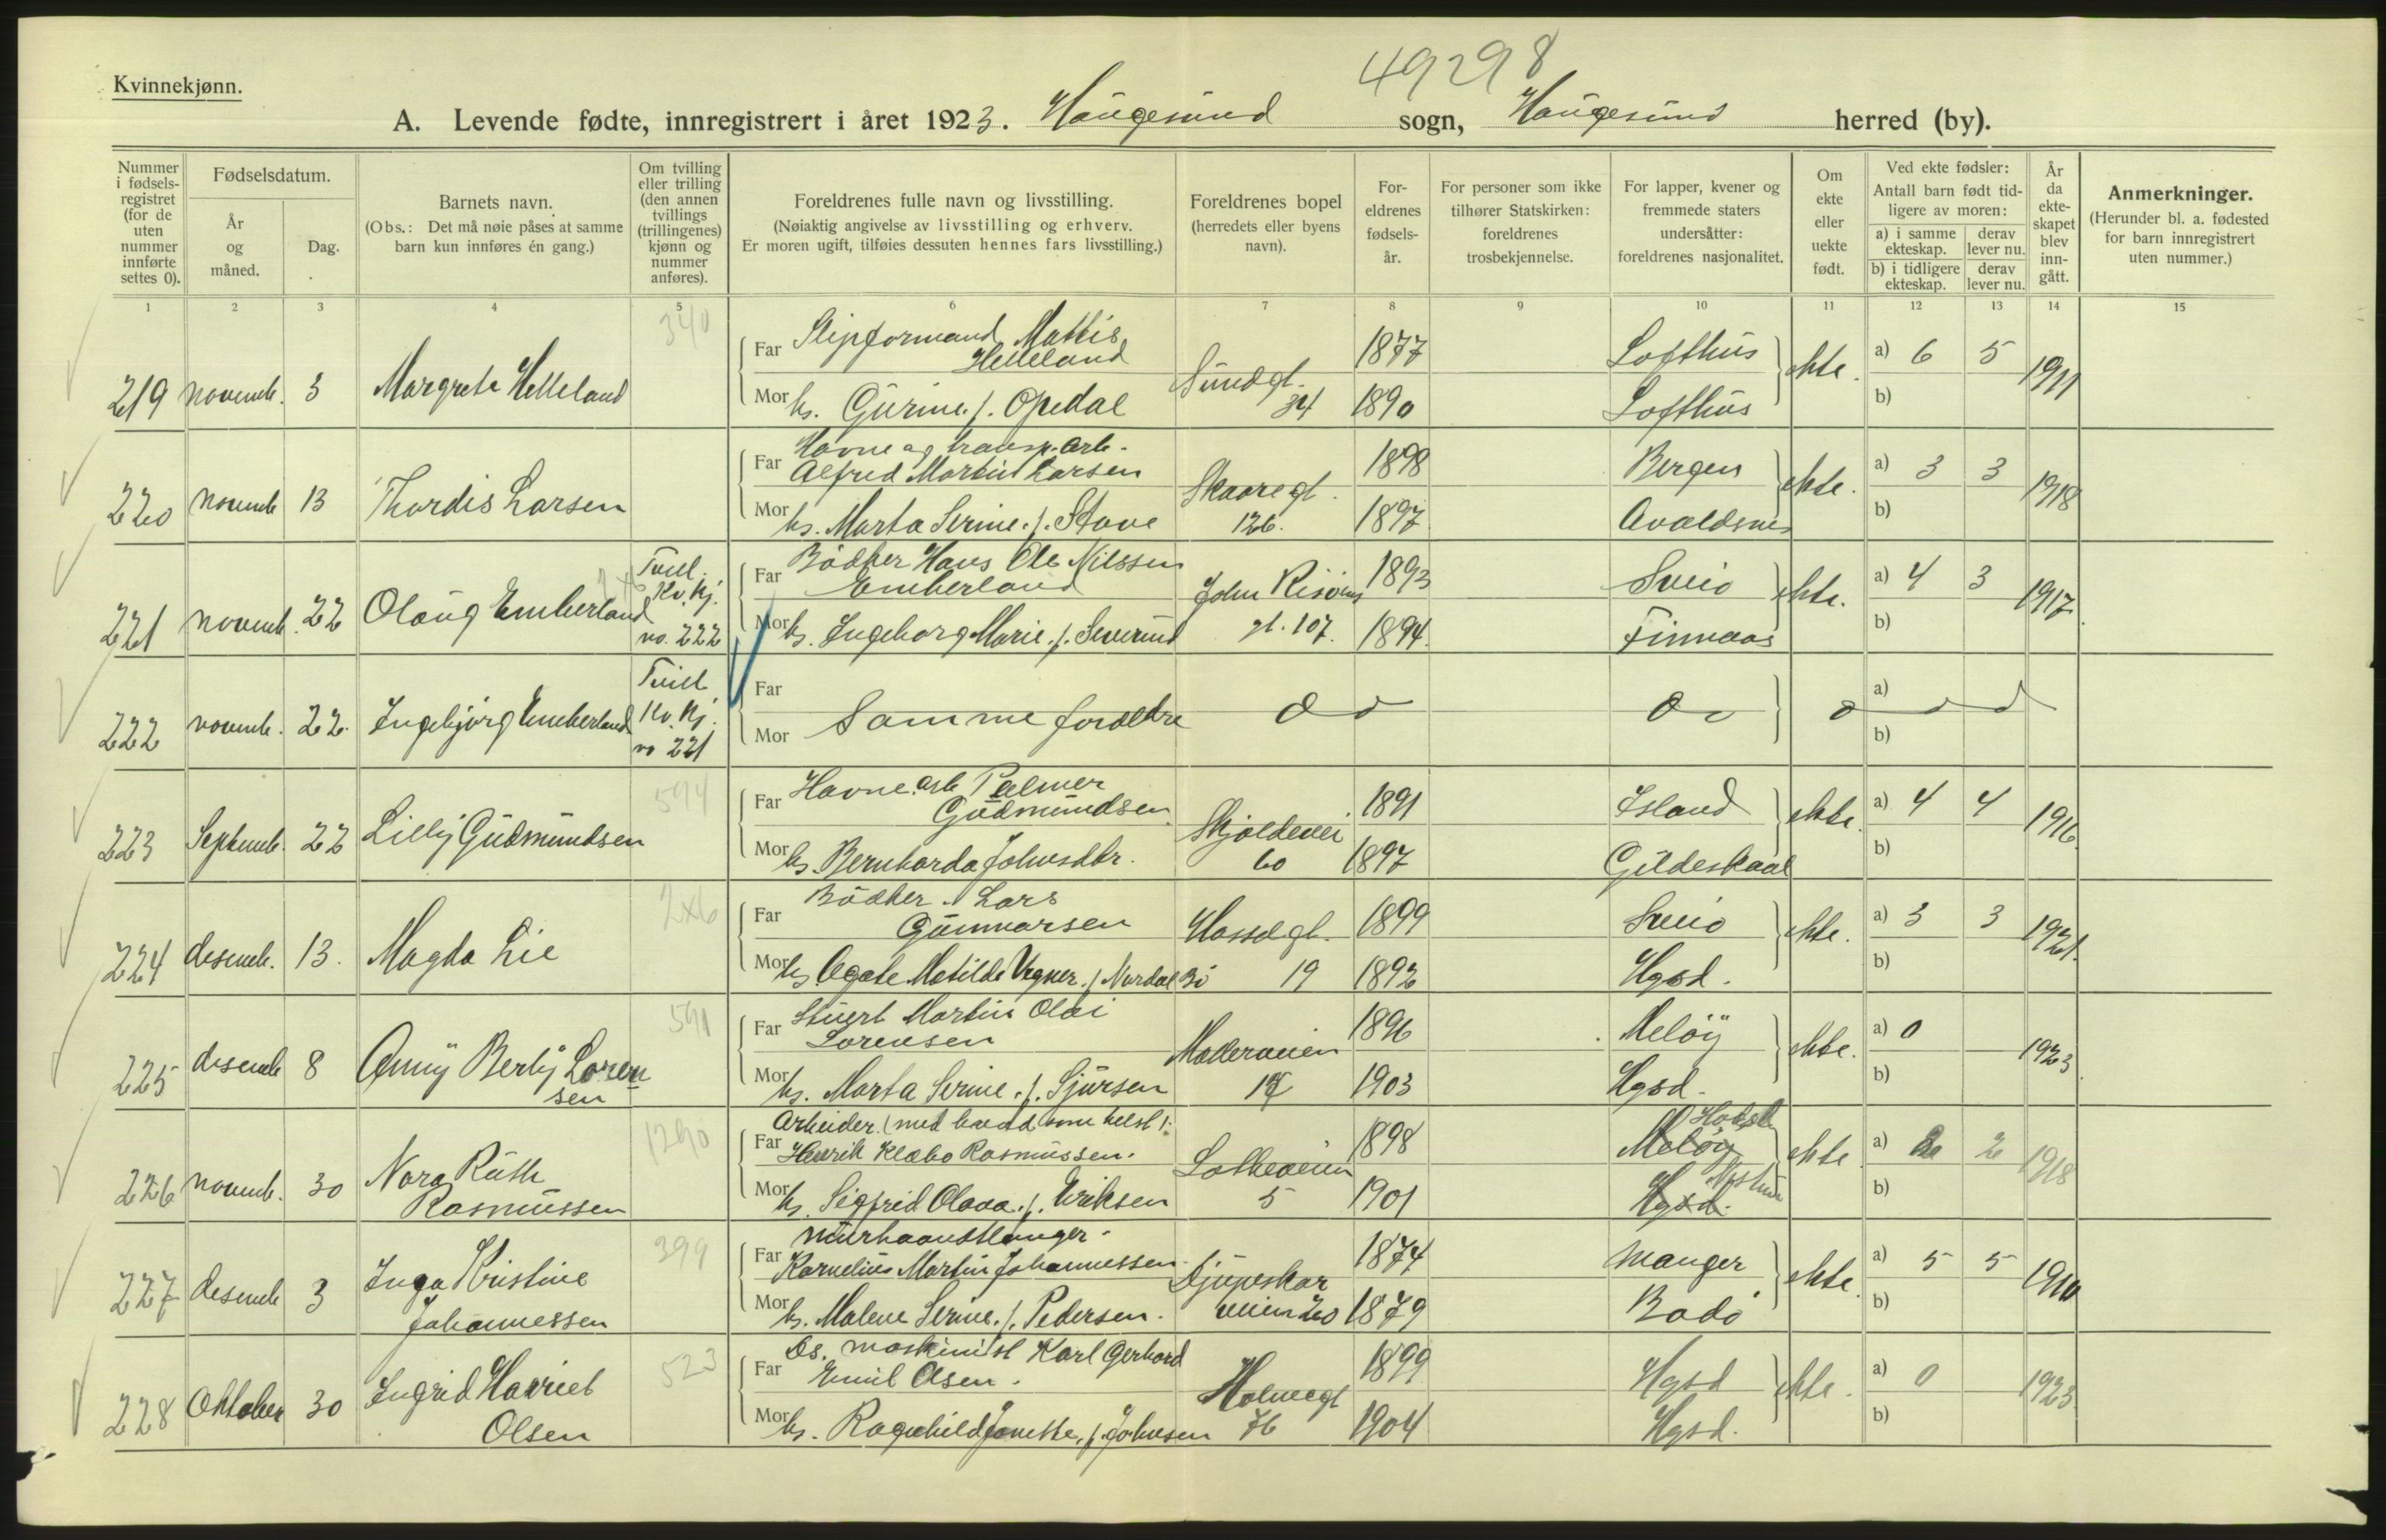 49298
Kvinnekjønn.
A. Levende fødte, innregistrert i året 1923. Haugesund sogn, Haugesund herred (by).
Nummer i fødsels-registret (for de uten nummer innførte settes 0).
Fødselsdatum.
År og måned.
Dag.
Barnets navn.
(Obs.: Det må nøie påses at samme barn kun innføres én gang.)
Om tvilling eller trilling (den annen tvillings (trillingenes) kjønn og nummer anføres).
Foreldrenes fulle navn og livsstilling.
(Nøiaktig angivelse av livsstilling og erhverv.
Er moren ugift, tilføies dessuten hennes fars livsstilling.)
Foreldrenes bopel
(herredets eller byens navn).
For-eldrenes fødsels-år.
For personer som ikke tilhører Statskirken: foreldrenes trosbekjennelse.
For lapper, kvener og fremmede staters undersåtter: foreldrenes nasjonalitet.
Om ekte eller uekte født.
Ved ekte fødsler:
Antall barn født tid-ligere av moren:
a) i samme ekteskap.
derav lever nu.
b) i tidligere ekteskap.
derav lever nu.
År da ekte-skapet blev inn-gått.
Anmerkninger.
(Herunder bl. a. fødested for barn innregistrert uten nummer.)
1 2 3 4 5 6 7 8 9 10 11 12 13 14 15
340
Far Slipformand Mathis Helleland 1877 Lofthus
219 novemb. 3 Margreta Helleland Sundgt. 34 ekte. a) 6 5 1911
Mor hs. Gurine f. Opedal 1890 Lofthus b)
Far Havne og transp. arb. Alfred Martin Larsen 1898 Bergen
220 novemb 13 Thordis Larsen Skaaregt. 126. ekte. a) 3 3 1918
Mor hs. Marta Serine f. Stave 1897 Avaldsnes b)
Far Bödker Hans Ole Nilssen Emberland 1893 Sveio
221 novemb. 22 Olaug Emberland Tvill. Kv. kj. no. 222 John Risöens gt. 107. ekte. a) 4 3 1917.
Mor hs. Ingeborg Marie f. Severind 1894. Finnaas b)
222 novemb. 22. Ingebjörg Emberland Tvill. Kv. kj. no 221
Far
Mor Samme foreldre a) b)
594
Far Havnearb Palmer Gudmundsen 1891 Island
223 Septemb. 22 Lilly Gudmundsen Skjoldevei 60 ekte. a) 4 4 1916
Mor hs. Bernharda Johnsdtr. 1897 Gildeskaal b)
2x6
Far Bödker Lars Gunnarsen 1899 Sveio
224 desemb. 13. Magda Lie Hasselgt. 19 ekte. a) 3 3 1921.
Mor hs Agate Matilde Vegner f. Nordal Bö 1892 Hgsd. b)
591
Far Stuert Martin Olai Lorensen 1896 Melöy
225 desemb 8 Anny Berly Lorensen Mölleraveien 17 ekte. a) 0 1923
Mor hs. Marta Serine f. Sjursen 1903 Hgsd. b)
1290
Far Arbeider (med hvad som helst). Henrik Klæbo Rasmussen. 1898 Melöy
226 novemb. 30 Nora Ruth Rasmussen Lotheveien 5 ekte a) 2 2 1918
Mor hs. Sigfrid Olava f. Eriksen 1901 Hgsd. b)
399
Far murhaandtlanger. Kornelius Martin Johannessen 1874 Manger
227 desemb 3 Inga Kristine Johannessen Djupeskarveien 20 ekte. a) 5 5 1910
Mor hs. Malene Serine f. Pedersen. 1879 Bodö b)
523
Far Ds. maskinist Karl Gerhard Emil Olsen. 1899 Hgsd
228 Oktober 30 Ingrid Harriet Olsen Holmegt 76 ekte. a) 0 1923
Mor hs. Ragnhild Jonette f. Johnsen 1904 Hgsd. b)